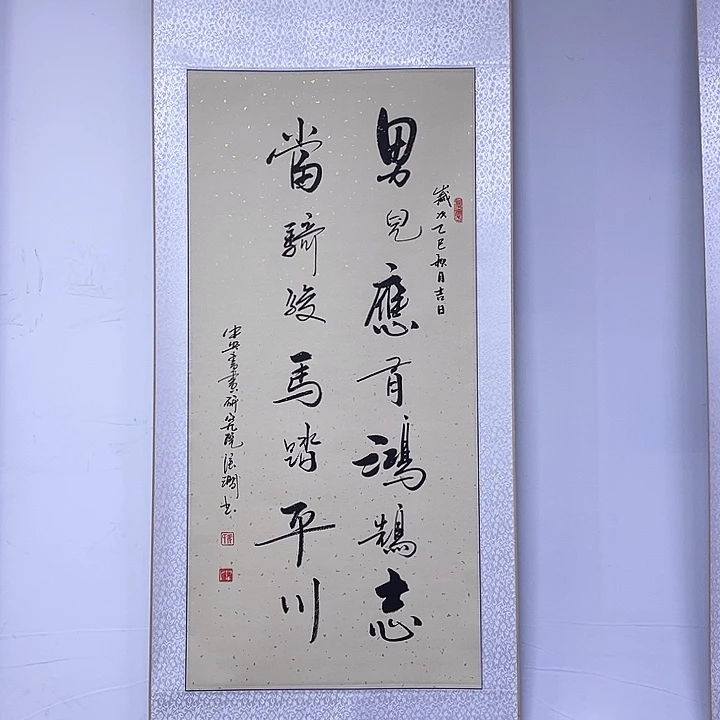 歲次乙巳秋月吉日
男兒應有鴻鵠志
當騎駿馬踏平川
央書畫研究院
书